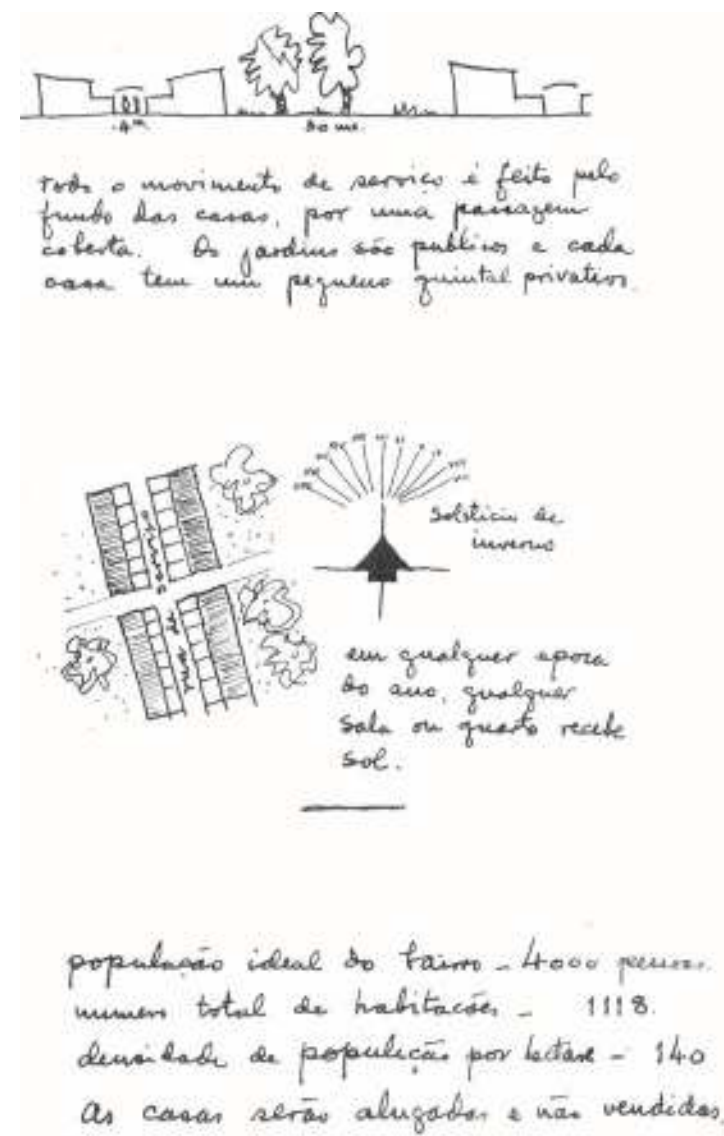 4m
30 ms.
Todo o movimento de serviço é feito pelo
fundo das casas, por uma passagem
coberta. Os jardins são publicos e cada
casa tem um pequeno quintal privativo.
rua de serviço
solsticio de
inverno
em qualquer epoca
do ano, qualquer
sala ou quarto recebe
sol.
população ideal do bairro - 4000 pessoas.
numero total de habitacões - 1118.
densidade de populição por hectare - 140
As casas serão alugadas e não vendidas.